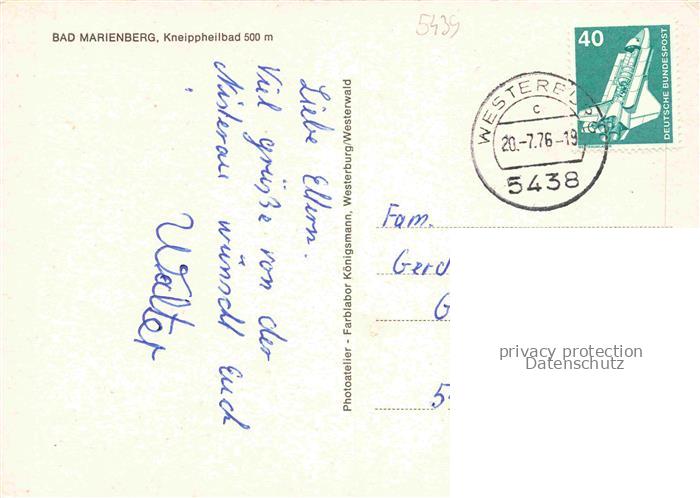 5439
BAD MARIENBERG, Kneippheilbad 500 m
Liebe Eltern.
Viel grüße von der
Nisterau wünscht Euch
Walter
Photoatelier - Farblabor Königsmann, Westerburg/Westerwald
40
DEUTSCHE BUNDESPOST
WESTERBURG
c
20.-7.76-19
5438
Fam.
Gerd
G
5
privacy protection
Datenschutz